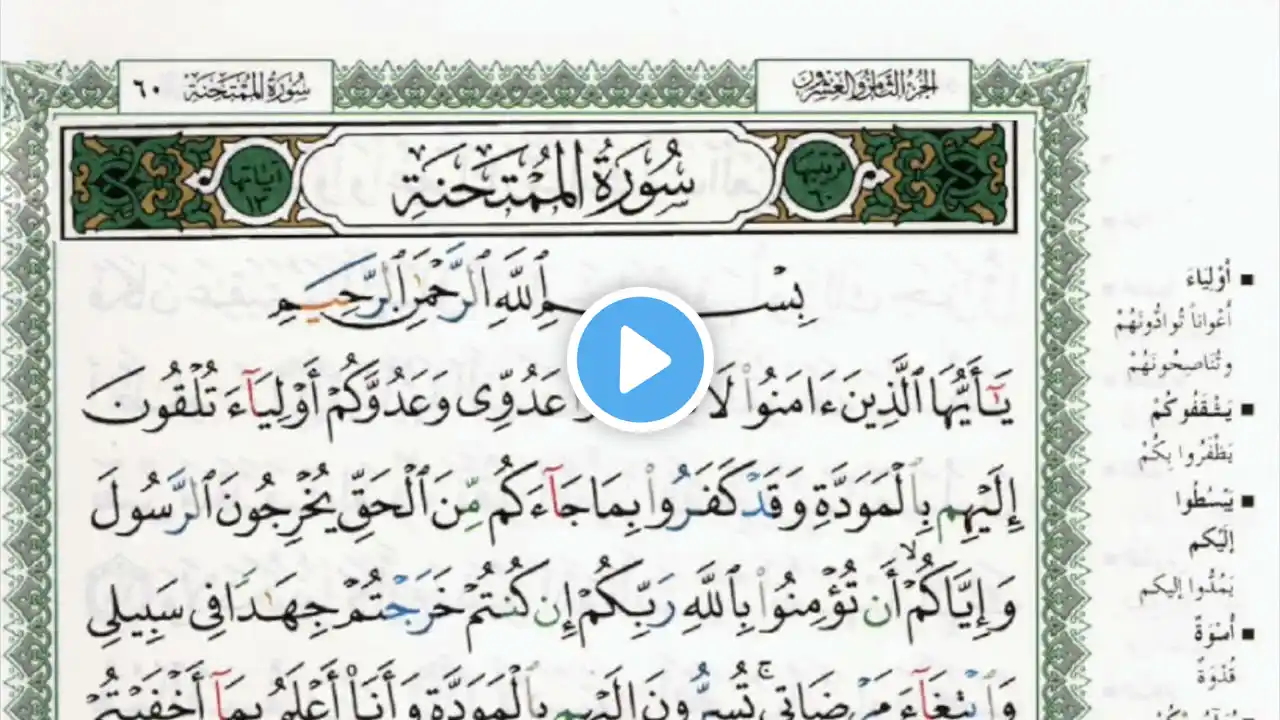 الجزء الثامن والعشرون
سورة الممتحنة ٦٠
ترتيبها ٦٠
سُورَةُ المُمْتَحنَةِ
آياتها ١٣
بِسْمِ ٱللَّهِ ٱلرَّحْمَٰنِ ٱلرَّحِيمِ
يَٰٓأَيُّهَا ٱلَّذِينَ ءَامَنُوا۟ لَا عَدُوِّى وَعَدُوَّكُمْ أَوْلِيَآءَ تُلْقُونَ
إِلَيْهِم بِٱلْمَوَدَّةِ وَقَدْ كَفَرُوا۟ بِمَا جَآءَكُم مِّنَ ٱلْحَقِّ يُخْرِجُونَ ٱلرَّسُولَ
وَإِيَّاكُمْ ۙ أَن تُؤْمِنُوا۟ بِٱللَّهِ رَبِّكُمْ إِن كُنتُمْ خَرَجْتُمْ جِهَٰدًا فِى سَبِيلِى
وَٱبْتِغَآءَ مَرْضَاتِى ۚ تُسِرُّونَ إِلَيْهِم بِٱلْمَوَدَّةِ وَأَنَا۠ أَعْلَمُ بِمَآ أَخْفَيْتُمْ
أَوْلِيَاءَ
أَعْوَاناً تُوَادُّونَهُمْ
وتُنَاصِحُونَهُمْ
يَثْقَفُوكُمْ
يَظْفَرُوا بِكُمْ
يَبْسُطُوا
إِلَيْكم
يَمُدُّوا إليكم
أُسْوَةٌ
قُدْوَةٌ